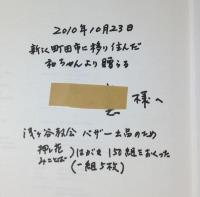 2010年10月23日
新しく町田市に移り住んだ
和ちゃんより贈らる
様へ
浅ヶ谷教会 バザー出品のため
押し花
みことば
)はがきを150組をおくった
(一組5枚)